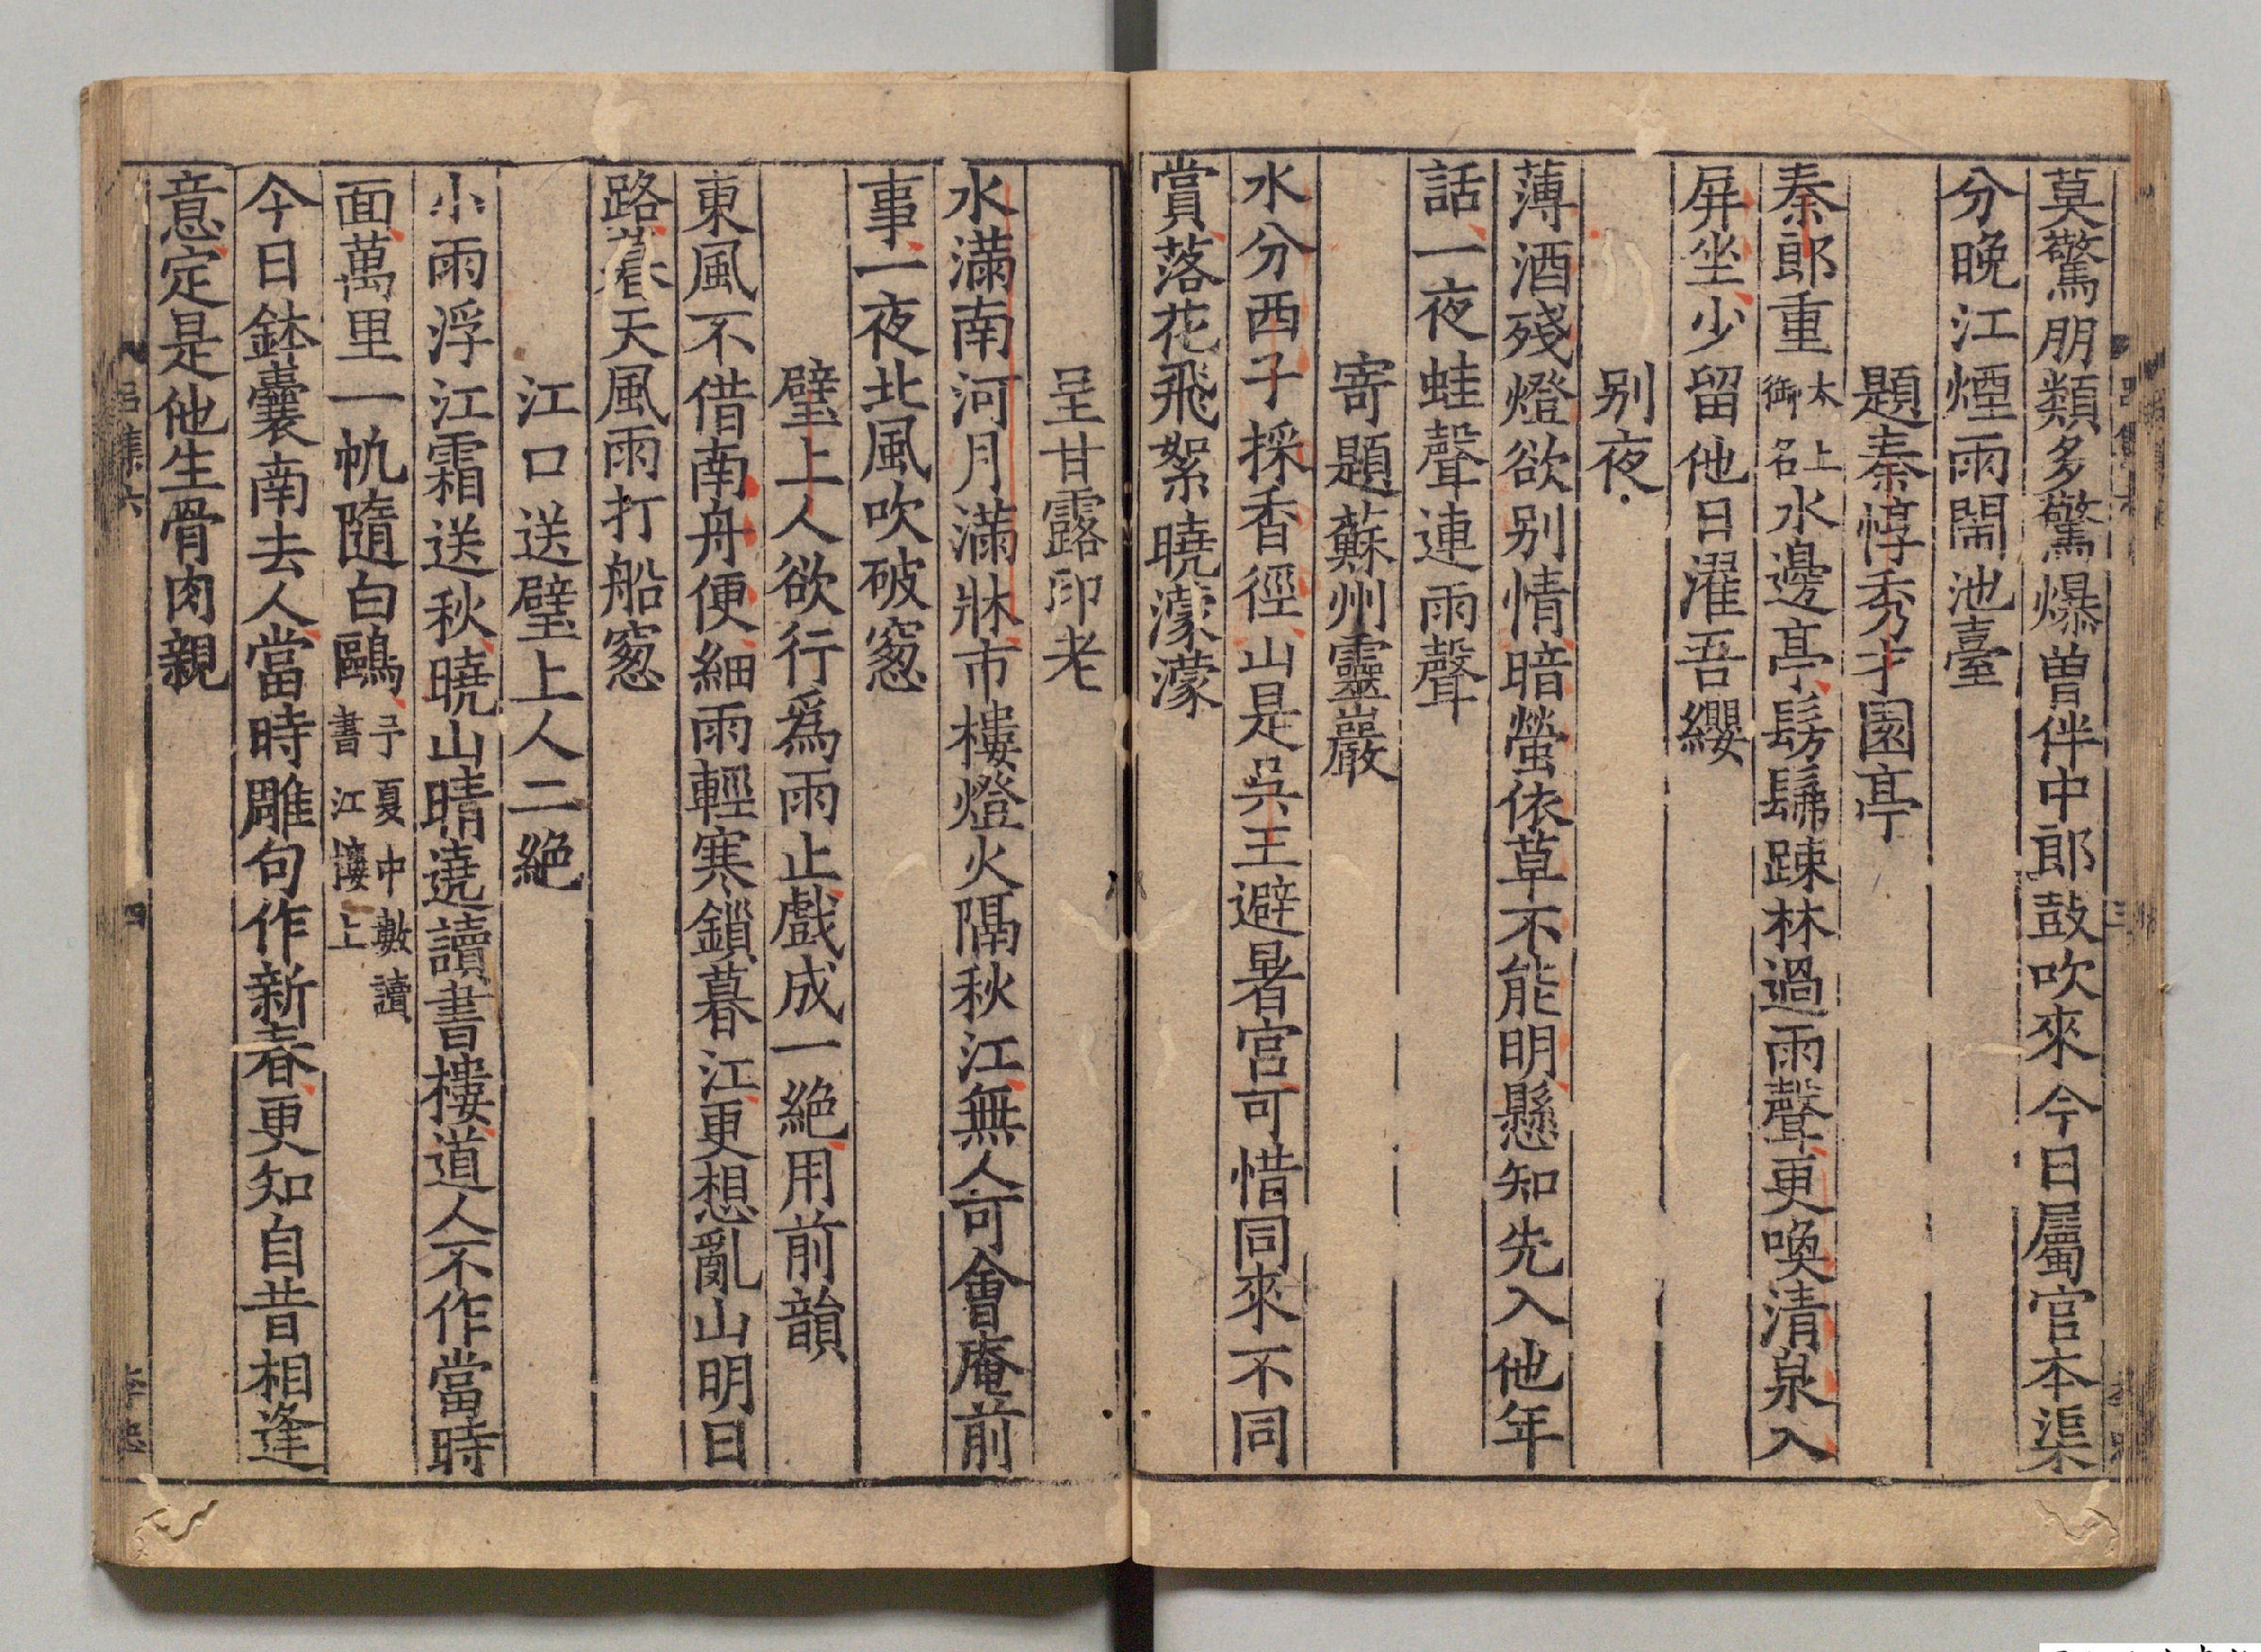 莫驚朋類多驚爆曾伴中郎鼓吹來今日屬官本渠
分晚江煙雨閙池臺
題秦惇秀才園亭
秦郎重太上御名水邊亭髣髴踈林過雨聲更喚清泉入
屏坐少留他日濯吾纓
别夜
薄酒殘燈欲别情暗螢依草不能明懸知先入他年
話一夜蛙聲連雨聲
寄題蘇州靈巖
水分西子採香徑山是吳王避暑宫可惜同來不同
賞落花飛絮曉濛濛
呈甘露印老
水滿南河月滿牀市樓燈火隔秋江無人可會庵前
事一夜北風吹破窻
璧上人欲行爲雨止戲成一絶用前韻
東風不借南舟便細雨輕寒鎖暮江更想亂山明日
路春天風雨打船窻
江口送璧上人二絶
小雨浮江霜送秋曉山晴遶讀書樓道人不作當時
面萬里一帆隨白鷗予夏中數讀書江樓上
今日鉢囊南去人當時雕句作新春更知自昔相逢
意定是他生骨肉親
吕集六
四